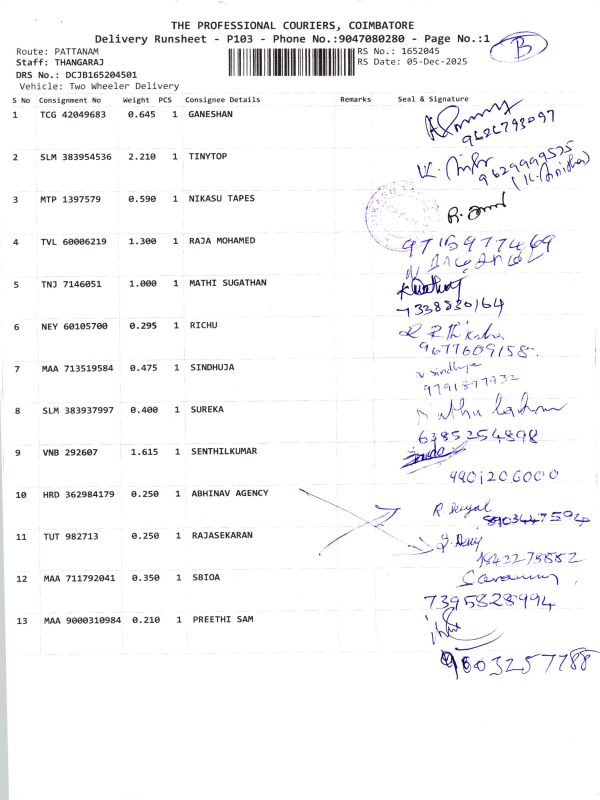 THE PROFESSIONAL COURIERS, COIMBATORE
Delivery Runsheet - P103 - Phone No.:9047080280 - Page No.:1
B
Route: PATTANAM
RS No.: 1652045
Staff: THANGARAJ
RS Date: 05-Dec-2025
DRS No.: DCJB165204501
Vehicle: Two Wheeler Delivery
S No Consignment No Weight PCS Consignee Details Remarks Seal & Signature
1 TCG 42049683 0.645 1 GANESHAN
9626793097
2 SLM 383954536 2.210 1 TINYTOP
9629999525
3 MTP 1397579 0.590 1 NIKASU TAPES
4 TVL 60006219 1.300 1 RAJA MOHAMED
9715977469
5 TNJ 7146051 1.000 1 MATHI SUGATHAN
7338830164
6 NEY 60105700 0.295 1 RICHU
9677609158
7 MAA 713519584 0.475 1 SINDHUJA
v sindhuja
8 SLM 383937997 0.400 1 SUREKA
6385254898
9 VNB 292607 1.615 1 SENTHILKUMAR
9901206000
10 HRD 362984179 0.250 1 ABHINAV AGENCY
11 TUT 982713 0.250 1 RAJASEKARAN
12 MAA 711792041 0.350 1 SBIOA
7395828994
13 MAA 9000310984 0.210 1 PREETHI SAM
9003257788